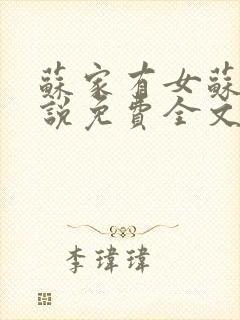 蘇家有女蘇
說免費全文
李瑋瑋